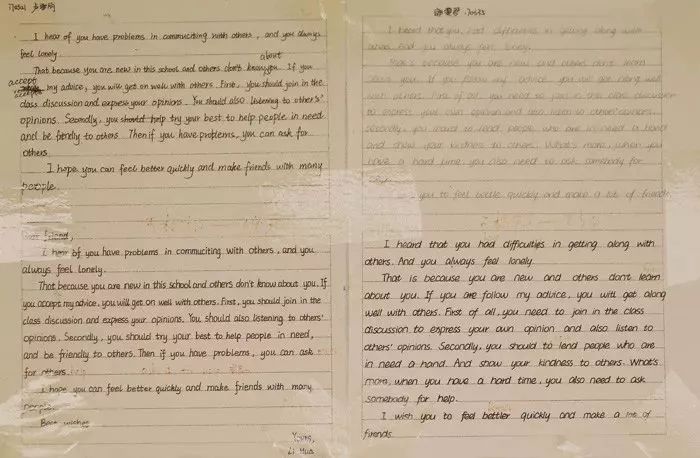 I hear of you have problems in commuciting with others, and you always
feel lonely
about
That because you are new in this school and others don't know you. If you
accept
my advice, you will get on walk with others. First, you should join in the
class discussion and express your opinions. You should also listening to others'
opinions. Secondly, you should help try your best to help people in need
and be fiendly to others. Then if you have problems, you can ask for
others.
I hope you can feel better quickly and make friends with many
people.
friend,
I hear of you have problems in commuciting with others, and you
always feel lonely.
That because you are new in this school and others don't know about you. If
you accept my advice, you will get on well with others. First, you should join in the
class discussion and express your opinions. You should also listening to others'
opinions. Secondly, you should try your best to help people in need,
and be friendly to others. Then if you have problems, you can ask
for others.
I hope you can feel better quickly and make friends with many
people.
Best wishes
Yours,
Li Hua
I heard that you had difficulties in getting along with
others. And you always feel, lonely.
That's because you are new and others don't learn
about you. If you follow my advice, you will get along well
with others. First of all, you need to join in the class discussion
to express your own opinion and also listen to others' opinions.
Secondly, you should to lend people who are in need a hand
and show your kindness to others. What's more, when you
have a hard time, you also need to ask somebody for
you to feel bettle quickly and make a lot of friends
I heard that you had difficulties in getting along with
others. And you always feel lonely.
That is because you are new and others don't learn
about you. If you are follow my advice, you will get along
well with others. First of all, you need to join in the class
discussion to express your own opinion and also listen to
others' opinions. Secondly, you should to lend people who are
in need a hand. And show your kindness to others. What's
more, when you have a hard time, you also need to ask
somebody for help.
I wish you to feel bettler quickly and make a lot of
firends.